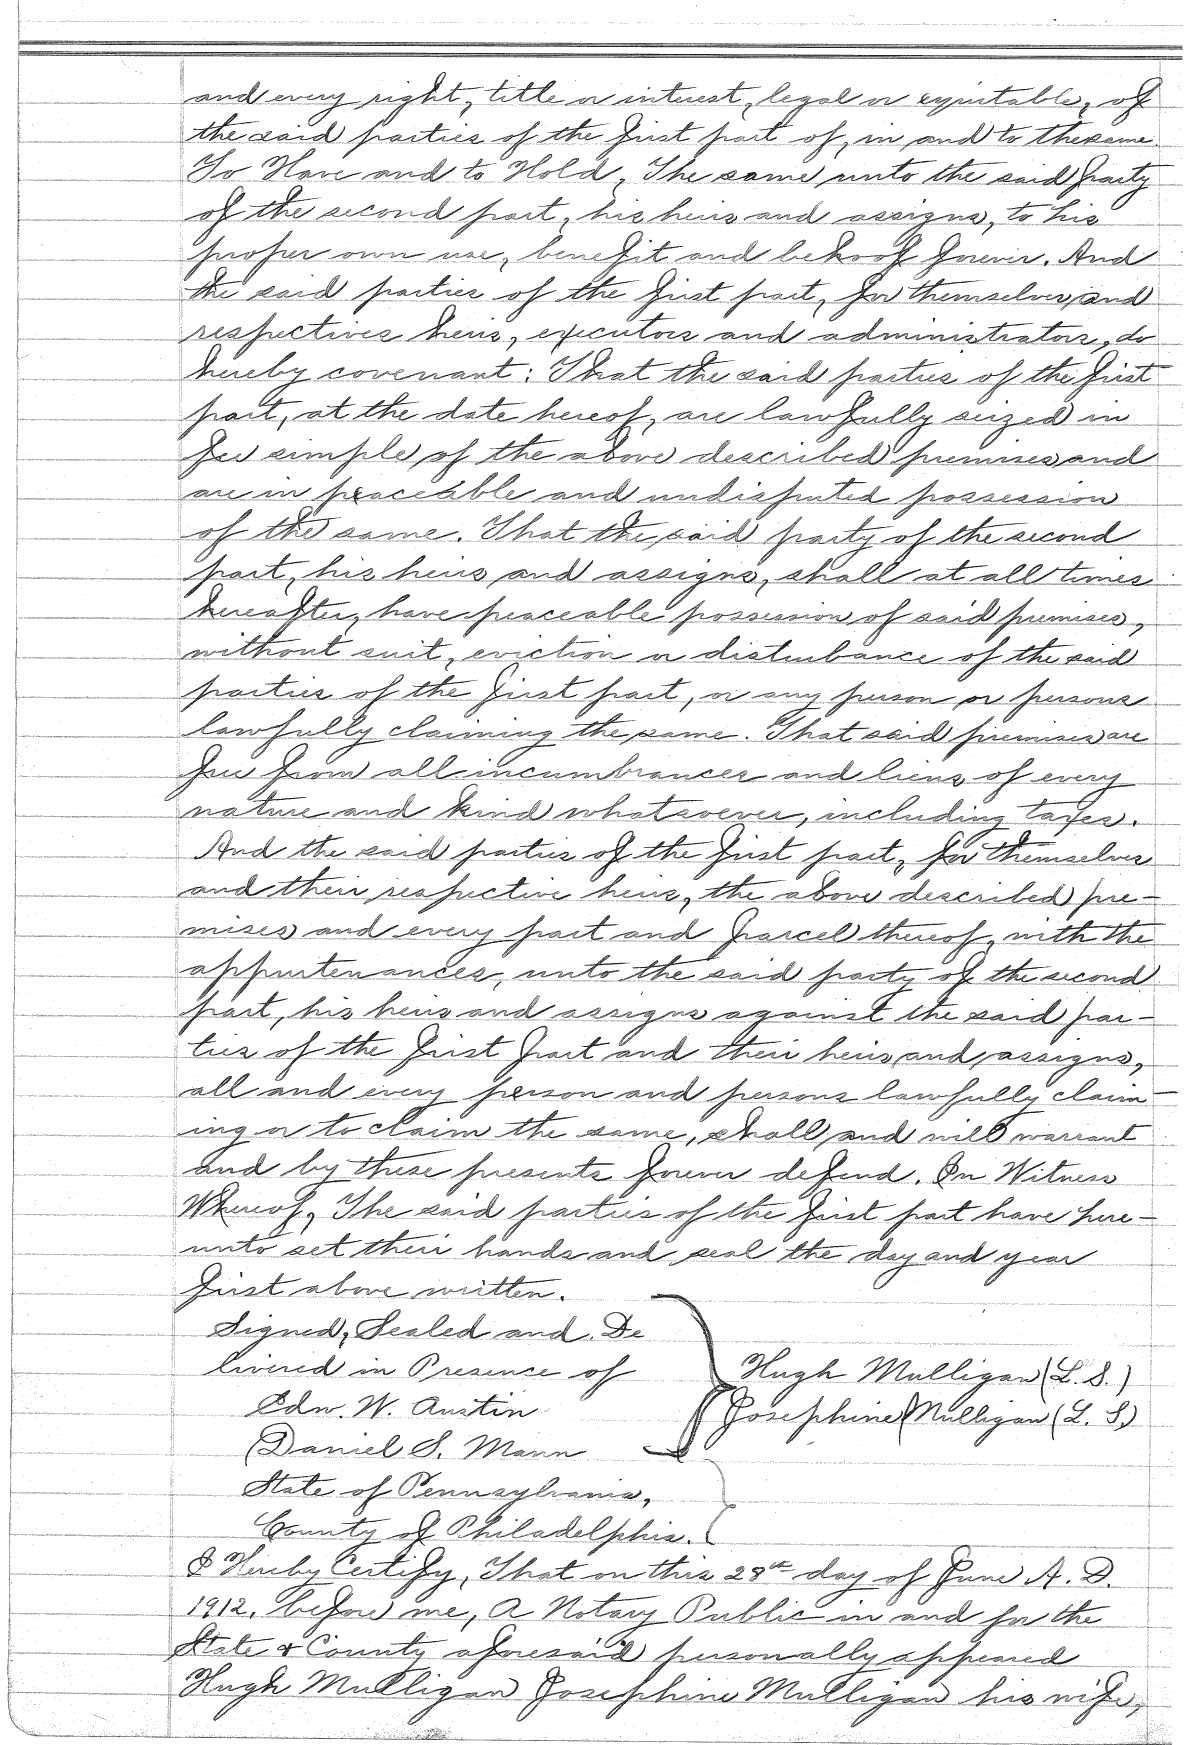 and every right, title or interest, legal or equitable, of
the said parties of the first part of, in and to the same.
To Have and to Hold, The same unto the said party
of the second part, his heirs and assigns, to his
proper own use, benefit and behoof forever. And
the said parties of the first part, for themselves and
respectives heirs, executors and administrators, do
hereby covenant: That the said parties of the first
part, at the date hereof, are lawfully seized in
fee simple of the above described premises and
are in peaceable and undisputed possession
of the same. That the said party of the second
part, his heirs and assigns, shall at all times
hereafter, have peaceable possession of said premises,
without suit, eviction or disturbance of the said
parties of the first part, or any person or persons
lawfully claiming the same. That said premises are
free from all incumbrances and liens of every
nature and kind whatsoever, including taxes.
And the said parties of the first part, for themselves
and their respective heirs, the above described pre-
mises and every part and parcel thereof, with the
appurtenances, unto the said party of the second
part, his heirs and assigns against the said par-
ties of the first part and their heirs and assigns,
all and every person and persons lawfully claim-
ing or to claim the same, shall and will warrant
and by these presents forever defend. In Witness
Whereof, The said parties of the first part have here-
unto set their hands and seal the day and year
first above written.
Signed, Sealed and De
livered in Presence of
Hugh Mulligan (L. S.)
Edw. W. Austin
Josephine Mulligan (L. S.)
Daniel S. Mann
State of Pennsylvania,
County of Philadelphia.
I Hereby Certify, That on this 28th day of June A. D.
1912, before me, A Notary Public in and for the
State & County aforesaid personally appeared
Hugh Mulligan Josephine Mulligan his wife,